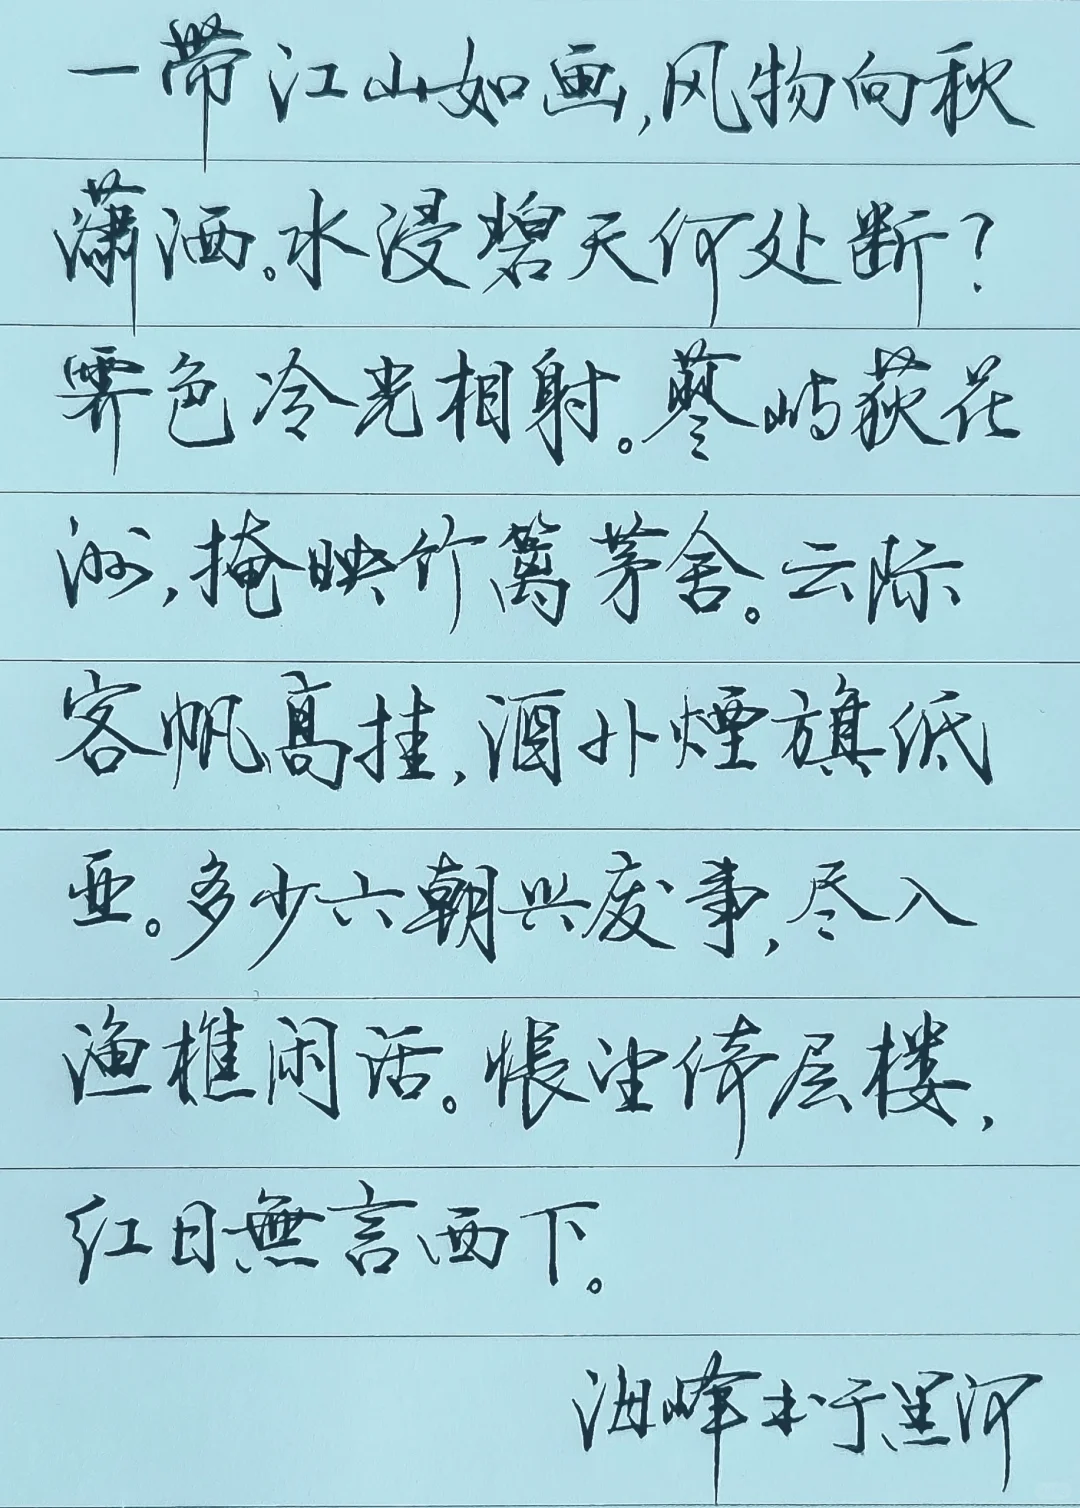 一帶江山如画,风物向秋
潇洒。水浸碧天何处断?
霁色冷光相射。蓼屿荻花
洲,掩映竹篱茅舍。云际
客帆高挂,酒外煙旗低
亚。多少六朝兴废事,尽入
渔樵闲话。怅望倚层楼,
红日無言西下。
海峰书于黑河